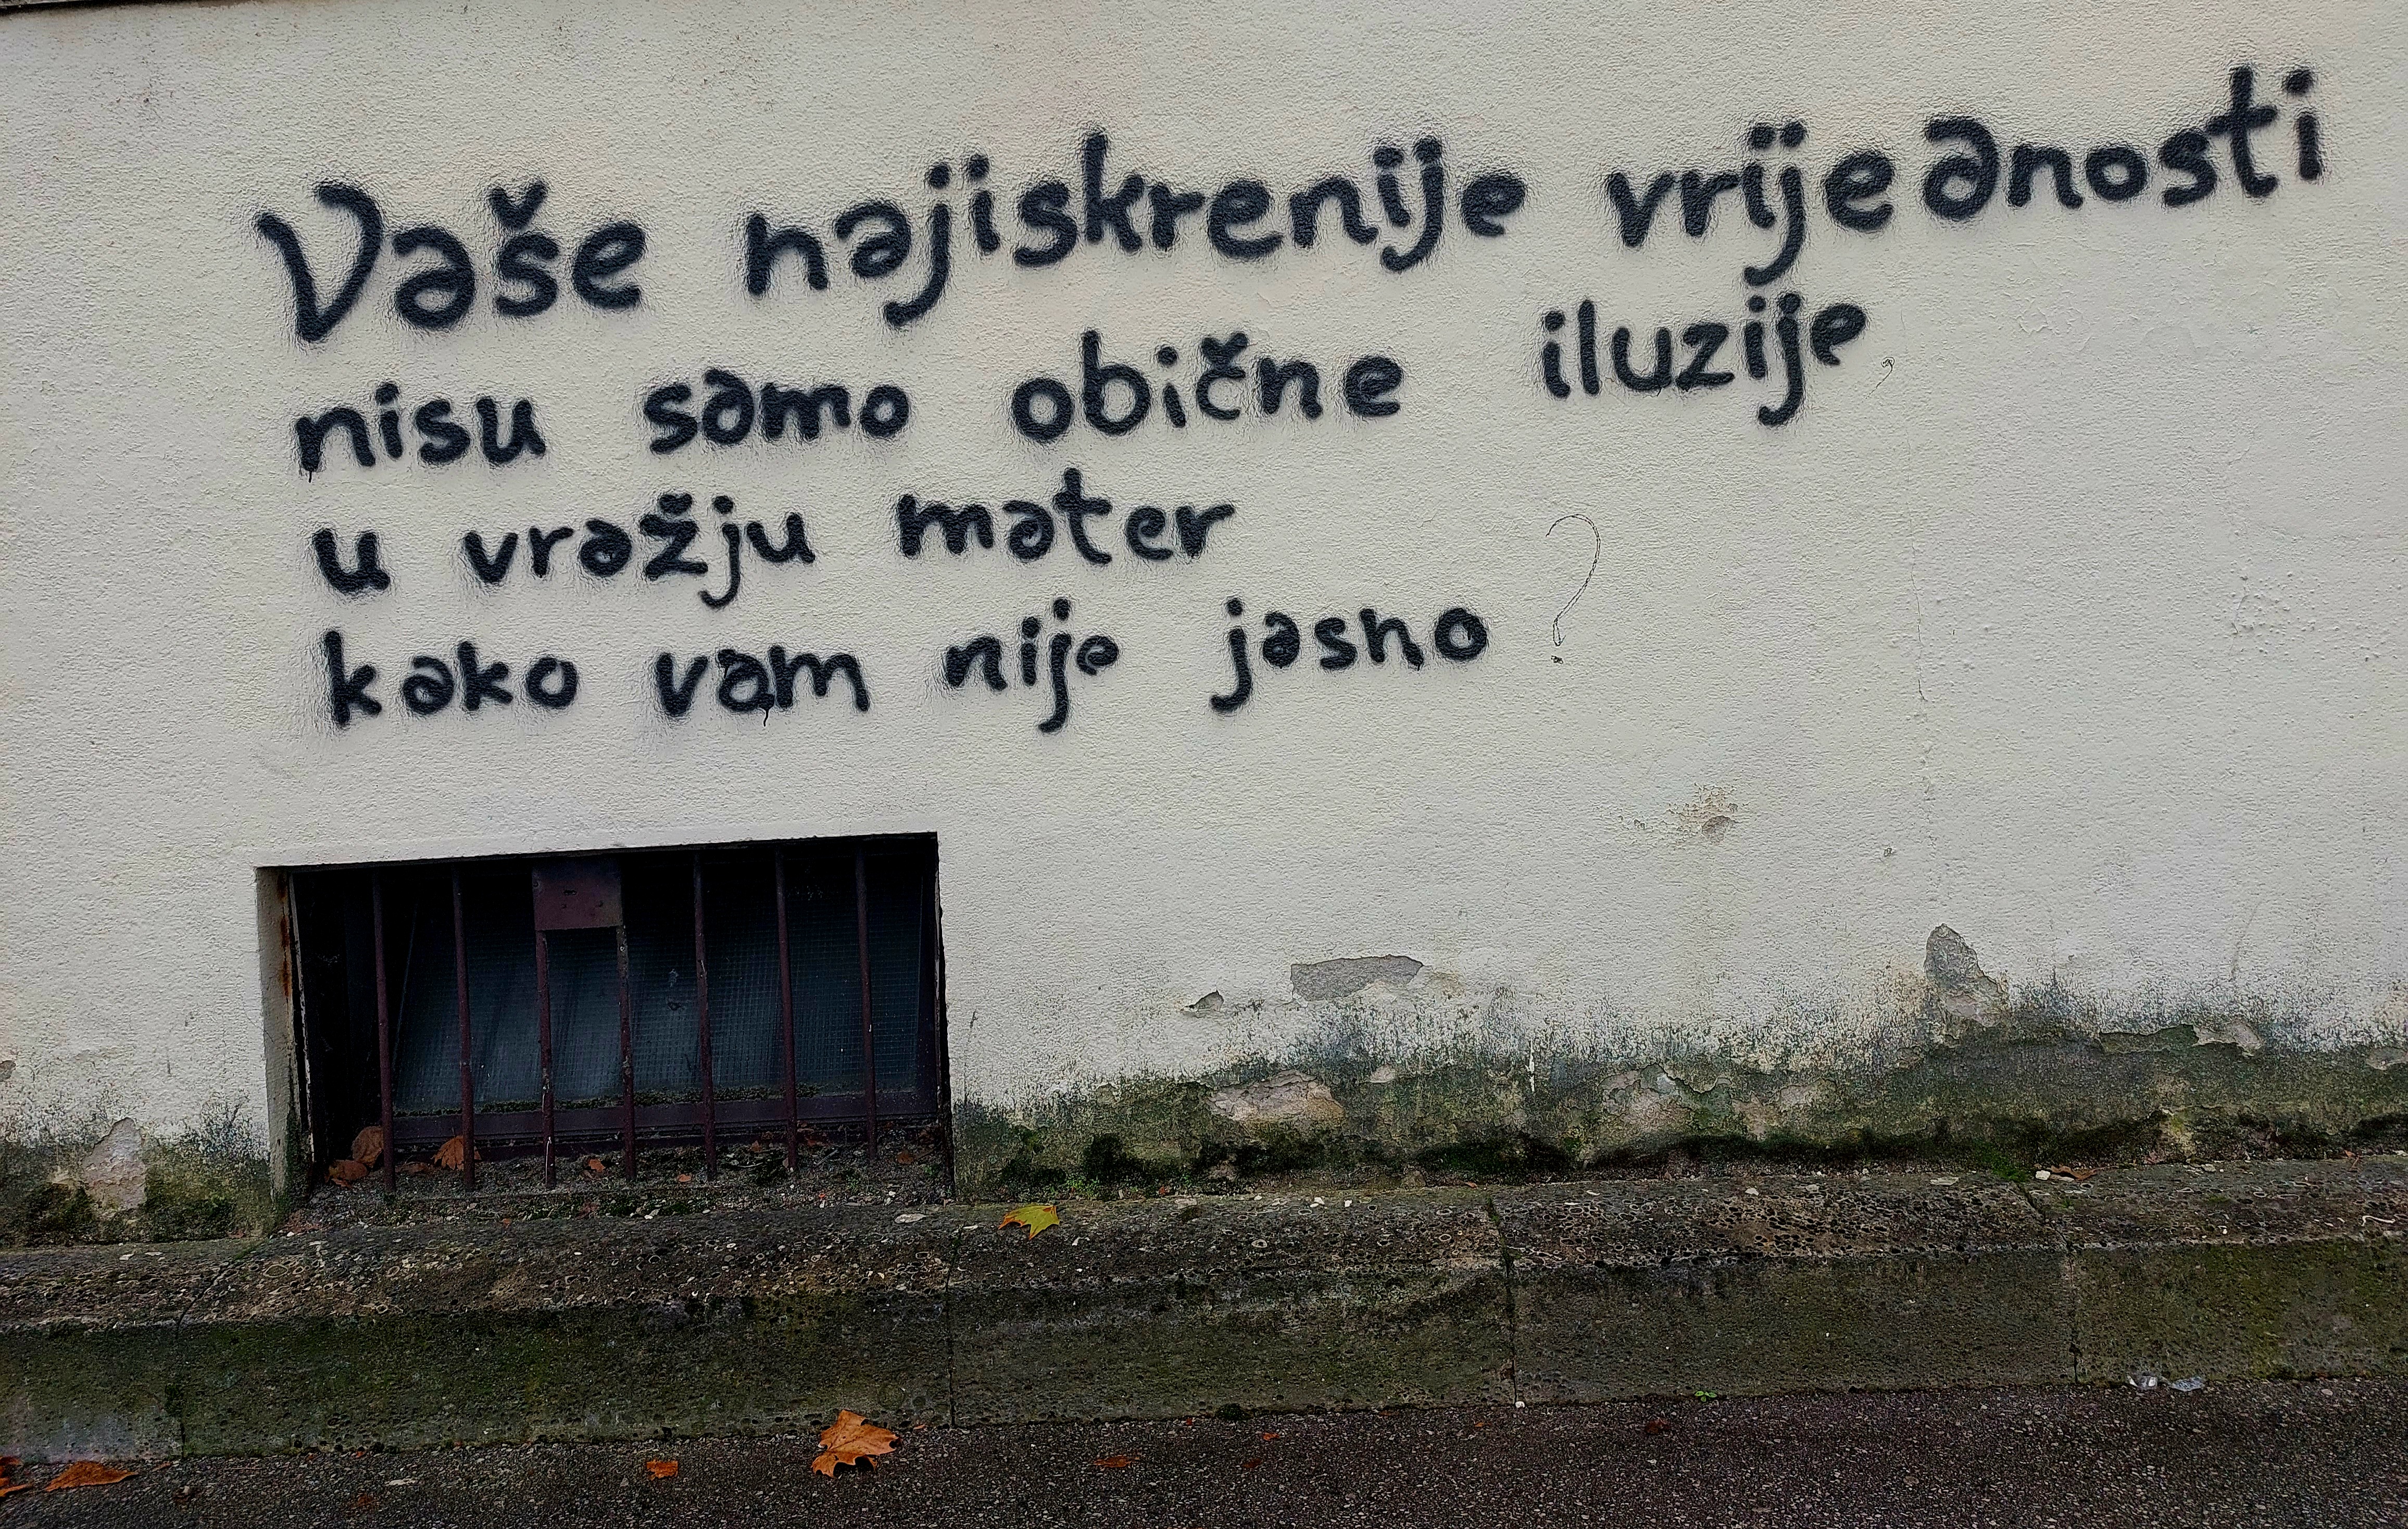 Vaše najiskrenije vrijednosti
nisu samo obične iluzije,
u vražju mater
kako vam nije jasno?